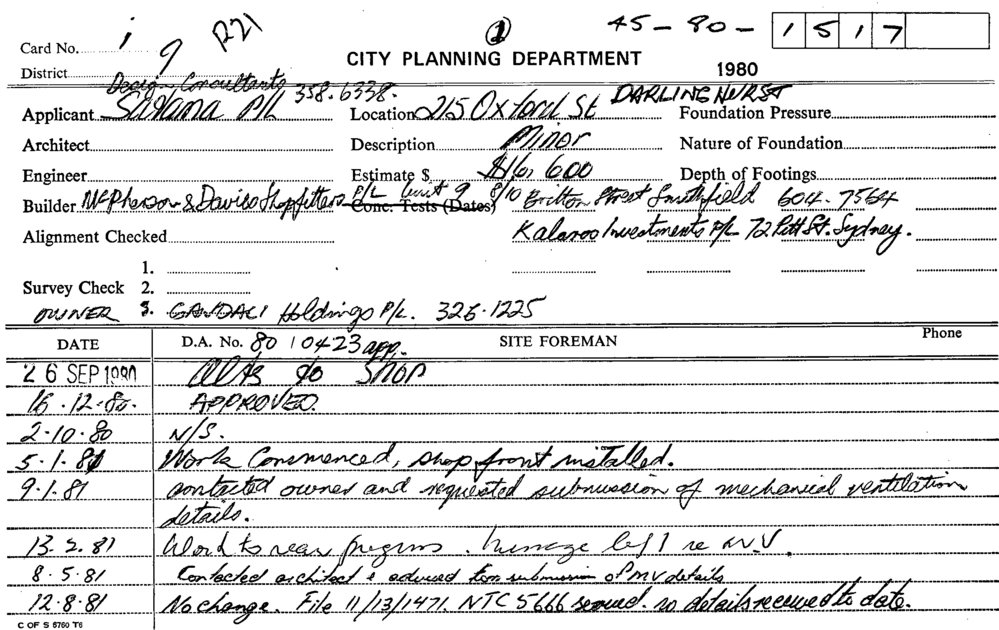 Card No. 1 9 R21 1 45-80-1517
District CITY PLANNING DEPARTMENT 1980
Design Consultants 358.6338. DARLINGHURST
Applicant P/L Location 215 Oxford St Foundation Pressure
Architect Description Minor Nature of Foundation
Engineer Estimate $ $16,600 Depth of Footings
Builder McPherson & Davies Shopfitters P/L Unit 9 8/10 Britton Street Smithfield 604-7564
Conc. Tests (Dates)
Alignment Checked Kalaroo Investments P/L 72 Pitt St. Sydney.
1.
Survey Check 2.
OWNER 3. Holdings P/L. 326.1225
DATE D.A. No. 80 10423 app. SITE FOREMAN Phone
26 SEP 1980 Alts to SHOP
16.12.80. APPROVED.
2-10-80 N/S.
5.1.81 Work Commenced, shop front installed.
9.1.81 contacted owner and requested submission of mechanical ventilation
details.
13.2.81 Work to rear progress. Message left re M.V.
8.5.81 Contacted architect & advised submission of MV details
12.8.81 No change. File 11/13/1471. NTC 5666 served. no details received to date.
C OF S 5760 T6